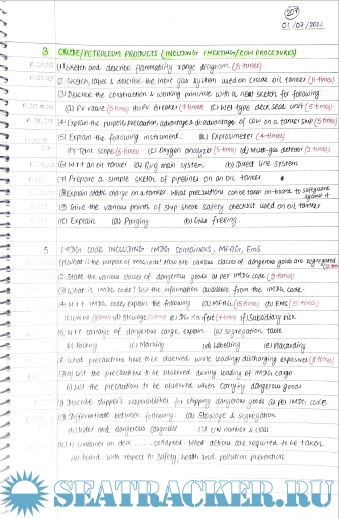 207
01/07/2022
3 CRUDE/PETROLEUM PRODUCTS (INCLUDING INERTING/COW PROCEDURES)
(1) Sketch and describe flammability range diagram. (8 times)
(2) Sketch, label & describe the inert gas system used on crude oil tanker (11 times)
(3) Describe the construction & working principle with a neat sketch for following.
(a) PV valve (5 times) (b) PV Breaker (7 times) (c) Wet type deck seal unit (5 times)
(4) Explain the purpose, precaution, advantage & disadvantage of COW on a tanker ship (5 times)
(5) Explain the following instrument. (a) Explosimeter (4 times)
(b) Tank scope (6 times) (c) Oxygen analyzer (5 times) (d) Multi-gas detector (3 times)
(6) Wrt an oil tanker (a) Ring main system (b) Direct line system
(7) Prepare a simple sketch of pipelines on an oil tanker
(8) Explain static charge on a tanker. What precautions can be taken on-board to safeguard against it
(9) Give the various points of ship shore safety checklist used on oil tanker
(10) Explain (a) Purging (b) Gas freeing.
5 IMDG code INCLUDING IMDG containers, MFAG, EmS
(1) What is the purpose of IMDG code? How are various classes of dangerous goods are segregated
(2) State the various classes of dangerous goods as per IMDG code (9 times)
(3) What is IMDG code? List the information available from the IMDG code.
(4) Wrt IMDG code, explain the following (a) MFAG (15 times) (b) EMS (15 times)
(d) Stowage (e) DG Manifest (4 times) (f) Subsidiary risk
(5) Wrt carriage of dangerous cargo, explain (a) segregation table
(b) Packing (c) Marking (d) Labelling (e) Placarding
(6) What precautions have to be observed while loading/discharging explosives (8 times)
(7)(a) List the precautions to be observed during loading of IMDG cargo
(b) List the precautions to be observed when carrying dangerous goods
(8) Describe shipper's responsibilities for shipping dangerous goods as per IMDG code
(9) Differentiate between following: (a) Stowage & segregation
(b) Index and dangerous (c) UN number & class
container on deck ..... collapsed. What actions are required to be taken
on board with respect to safety, health and pollution prevention
SEATRACKER.RU